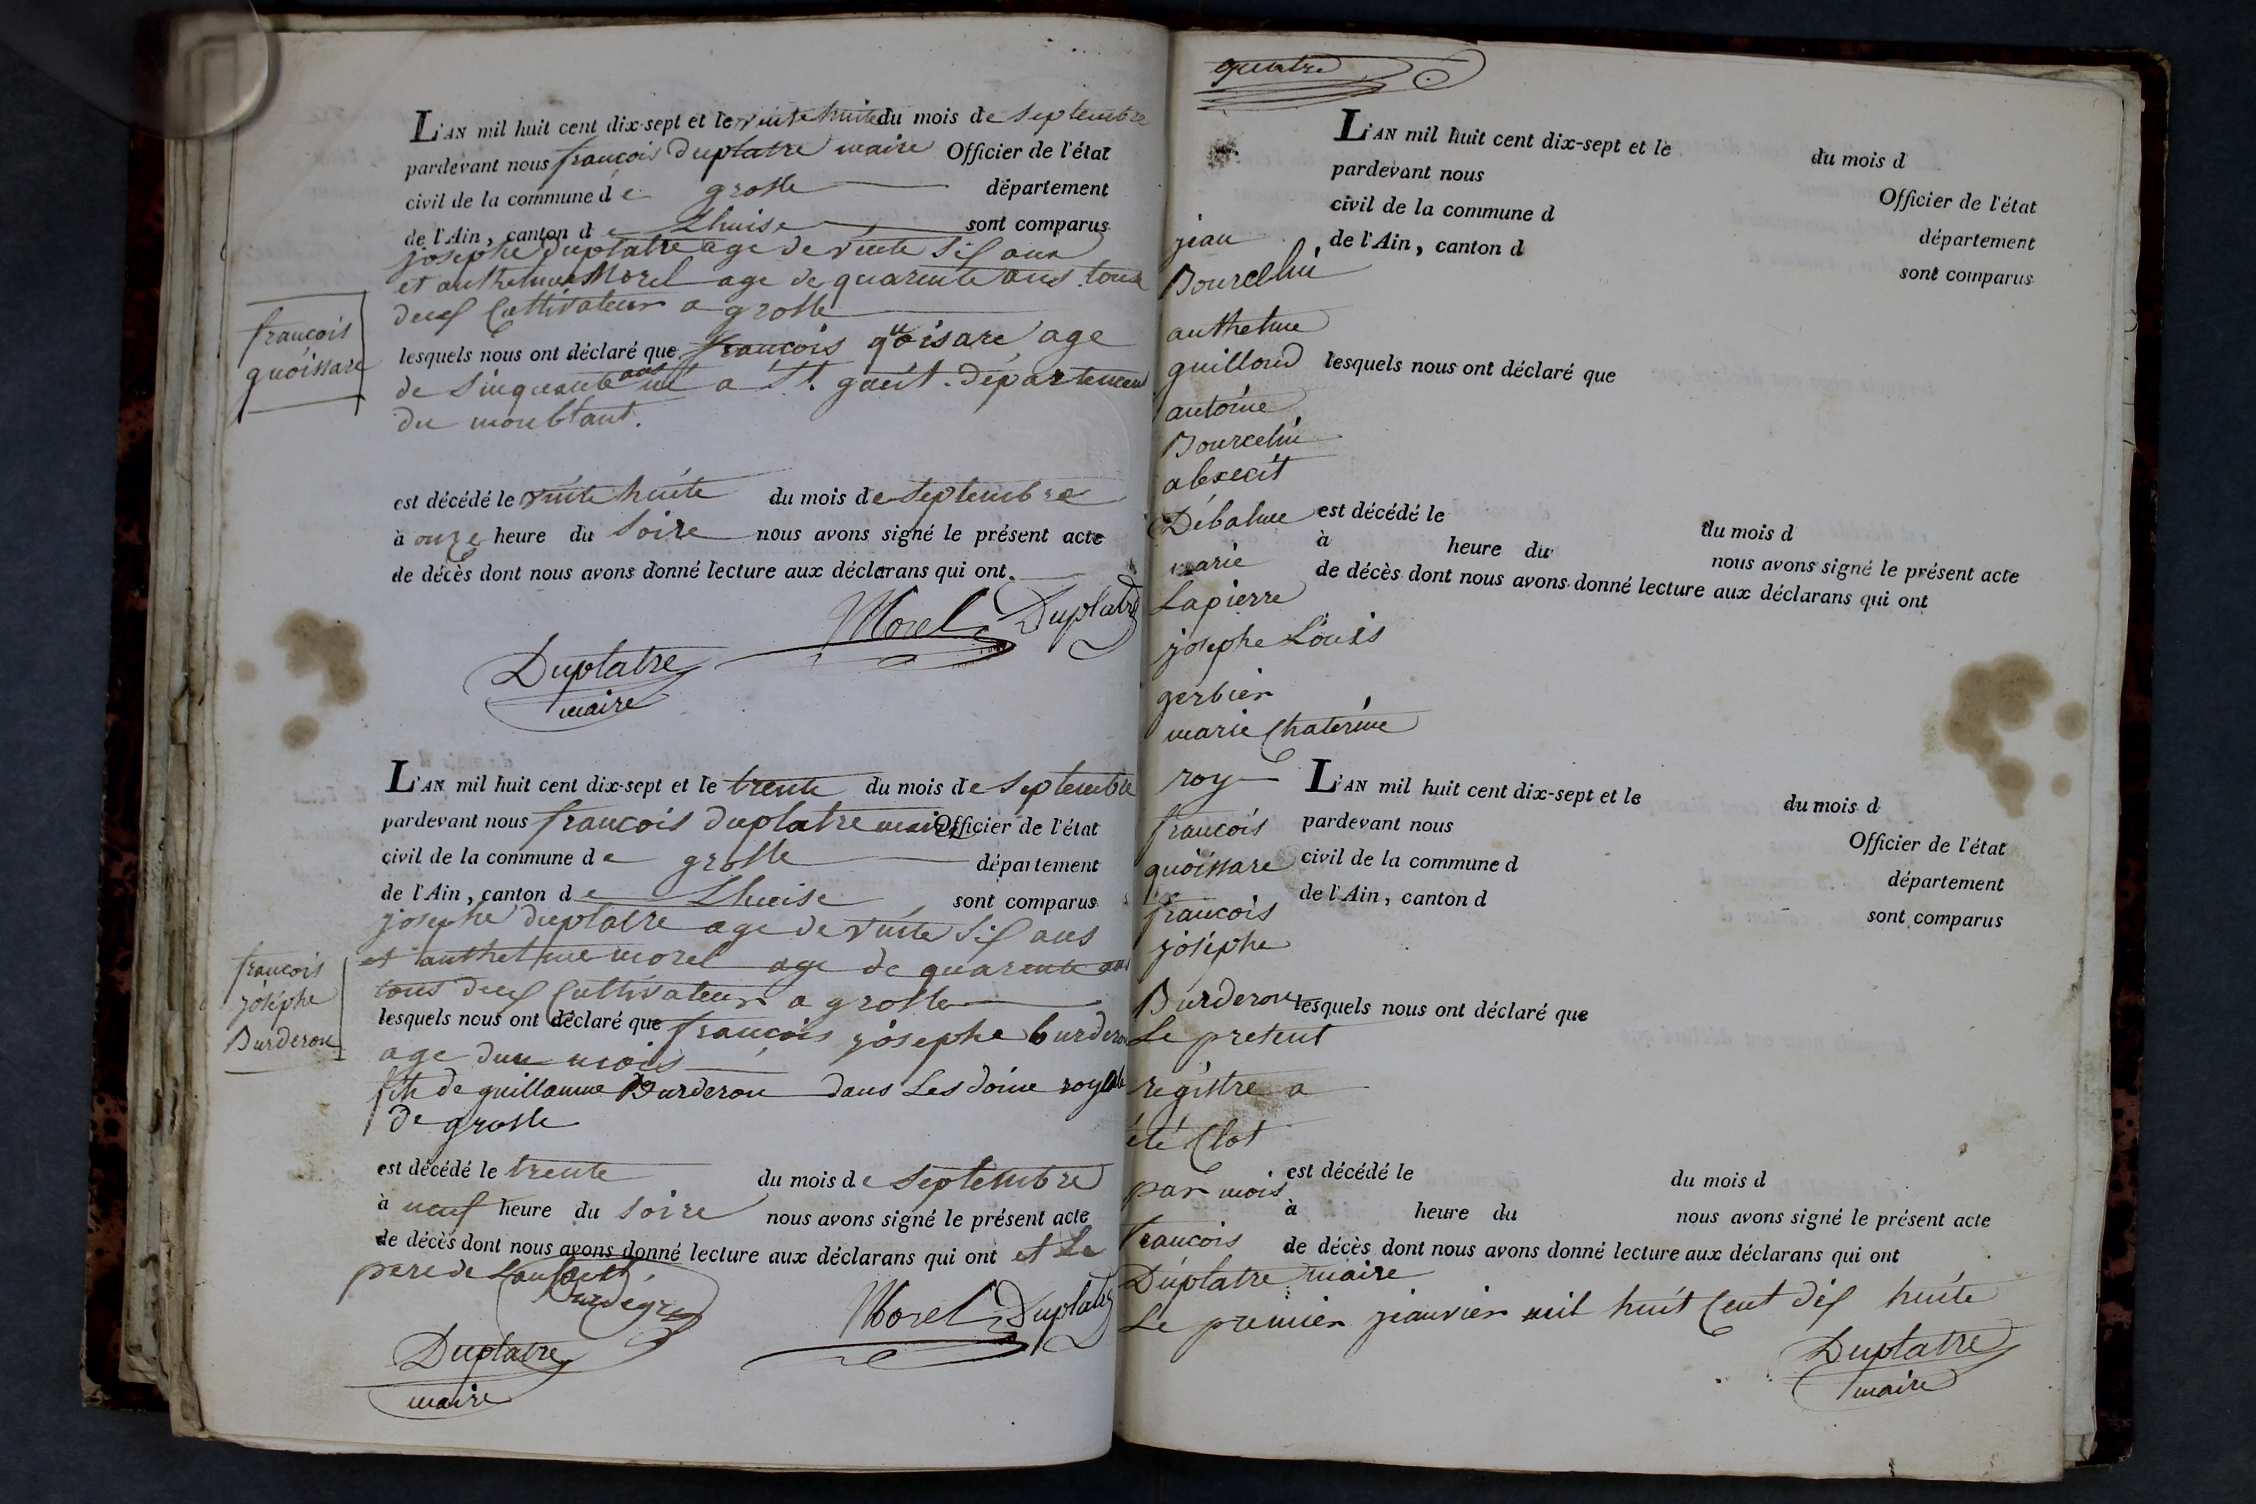 L'AN mil huit cent dix-sept et le vinte huite du mois de septembre
pardevant nous françois duplatre maire Officier de l'état
civil de la commune de grosle département
de l'Ain, canton de Lhuise sont comparus
josephe Duplatre age de vinte sis ans
et anthelme Morel age de quarente ans tous
deus Cultivateur a grosle
françois
quoissare
lesquels nous ont déclaré que françois quoisare age
de sinquante ans a St. département
du monblant.
est décédé le vinte huite du mois de septembre
à onze heure du soire nous avons signé le présent acte
de décès dont nous avons donné lecture aux déclarans qui ont
Morel Duplatre
Duplatre
maire
L'AN mil huit cent dix-sept et le trente du mois de septembre
pardevant nous françois duplatre maire Officier de l'état
civil de la commune de grosle département
de l'Ain, canton de Lhuise sont comparus
josephe duplatre age de vinte sis ans
et anthelme morel age de quarente ans
tous deus Cultivateur a grosle
françois
josephe
Burderon
lesquels nous ont déclaré que françois josephe burderon
age dun mois
fils de guillaume Burderon dans Les doine royale
de grosle
est décédé le trente du mois de septembre
à neuf heure du soire nous avons signé le présent acte
de décès dont nous avons donné lecture aux déclarans qui ont et Le
pere de
Morel Duplatre
Duplatre
maire
quatre
L'AN mil huit cent dix-sept et le du mois d
pardevant nous Officier de l'état
civil de la commune d département
de l'Ain, canton d sont comparus
jean
Bourcelin
anthelme
guilloud lesquels nous ont déclaré que
antoine
Bourcelin
Debalme est décédé le du mois d
à heure du nous avons signé le présent acte
marie de décès dont nous avons donné lecture aux déclarans qui ont
Lapierre
josephe Louis
gerbier
marie Chaterine
roy L'AN mil huit cent dix-sept et le du mois d
françois pardevant nous Officier de l'état
quoissare civil de la commune d département
de l'Ain, canton d sont comparus
françois
josephe
Burderon lesquels nous ont déclaré que
Le present
registre a
été Clot
par mois est décédé le du mois d
à heure du nous avons signé le présent acte
francois de décès dont nous avons donné lecture aux déclarans qui ont
Duplatre maire
Le premier jeanvier mil huit Cent dis huite
Duplatre
maire